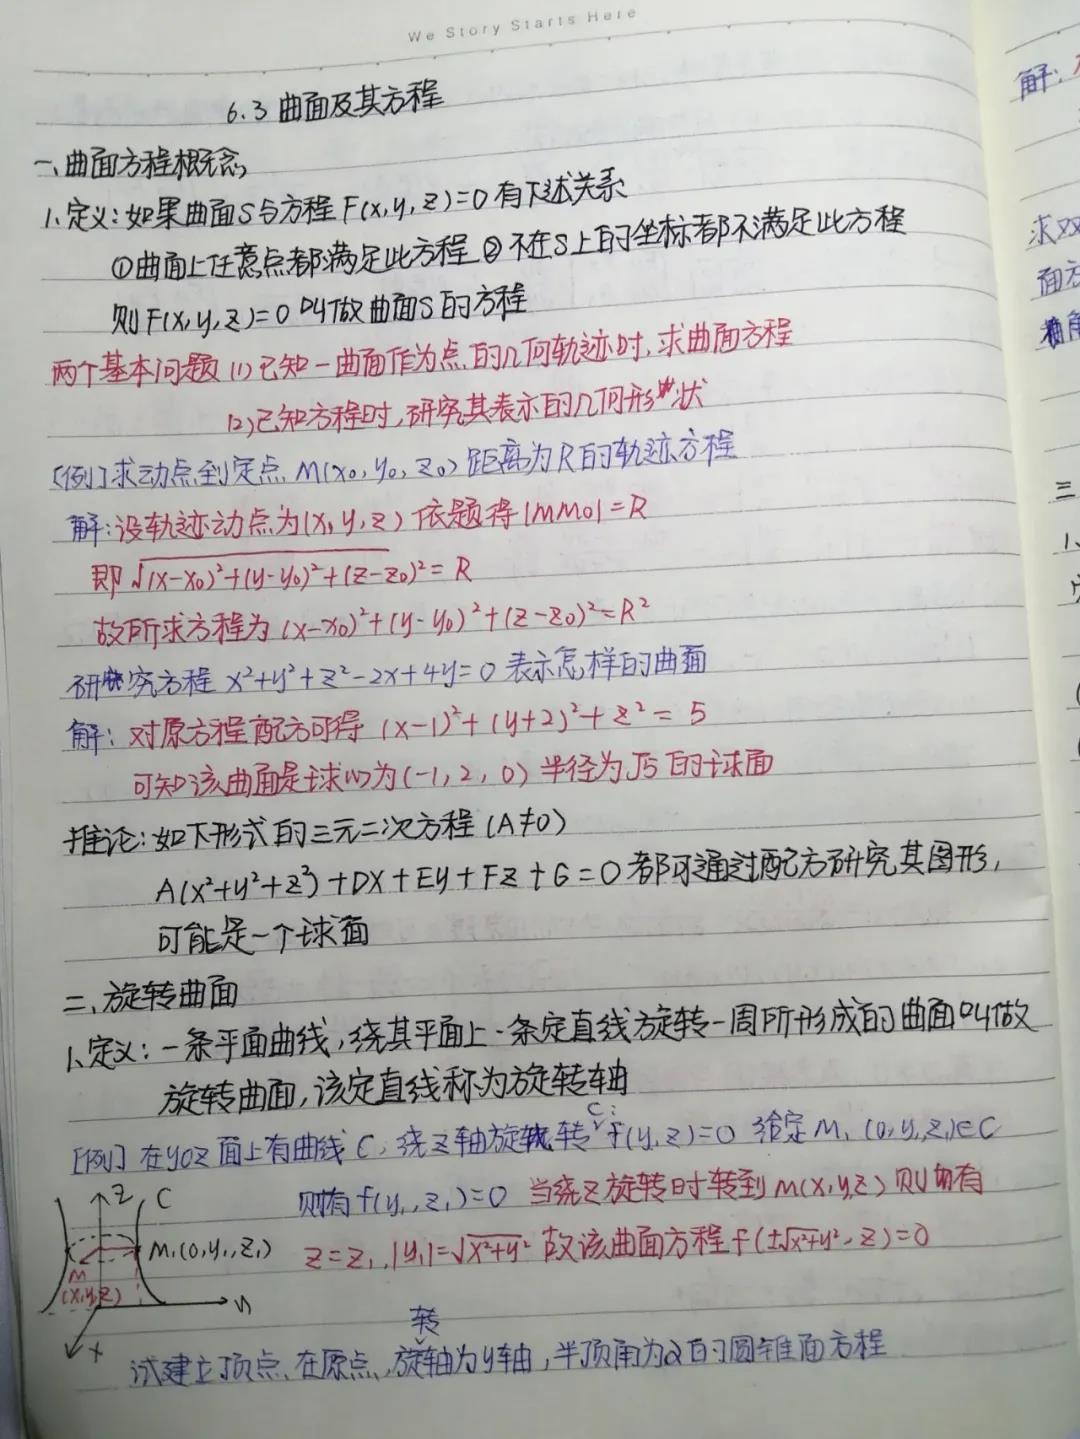 We Story Starts Here
6.3 曲面及其方程
一、曲面方程概念
1、定义：如果曲面S与方程F(x,y,z)=0有下述关系
①曲面上任意点都满足此方程 ②不在S上的坐标都不满足此方程
则F(x,y,z)=0叫做曲面S的方程
两个基本问题 (1)已知一曲面作为点的几何轨迹时,求曲面方程
(2)已知方程时,研究其表示的几何形状
[例]求动点到定点M(x₀,y₀,z₀)距离为R的轨迹方程
解:设轨迹动点为(x,y,z) 依题得|MM₀|=R
即√(x-x₀)²+(y-y₀)²+(z-z₀)²=R
故所求方程为(x-x₀)²+(y-y₀)²+(z-z₀)²=R²
研究方程x²+y²+z²-2x+4y=0表示怎样的曲面
解:对原方程配方可得 (x-1)²+(y+2)²+z²=5
可知该曲面是球心为(-1,2,0)半径为√5的球面
推论:如下形式的三元二次方程(A≠0)
A(x²+y²+z²)+DX+Ey+Fz+G=0都可通过配方研究其图形,
可能是一个球面
二、旋转曲面
1、定义:一条平面曲线,绕其平面上一条定直线旋转一周所形成的曲面叫做
旋转曲面,该定直线称为旋转轴
[例]在yoz面上有曲线C,绕z轴旋转 C: f(y,z)=0 给定M₁(0,y₁,z₁)∈C
则有f(y₁,z₁)=0 当绕z旋转时转到M(x,y,z)则有
z=z₁,|y₁|=√x²+y² 故该曲面方程f(±√x²+y²,z)=0
z C
M₁(0,y₁,z₁)
M
(x,y,z)
y
x
试建立顶点在原点,旋转轴为y轴,半顶角为α的圆锥面方程
解:
求双
面方
轴
三
1、